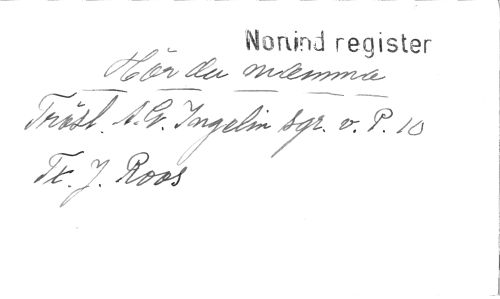 Norund register
Hör du mamma
Tröst. A.G. Ingelin sgr. v. P. 10
Tx. J. Roos